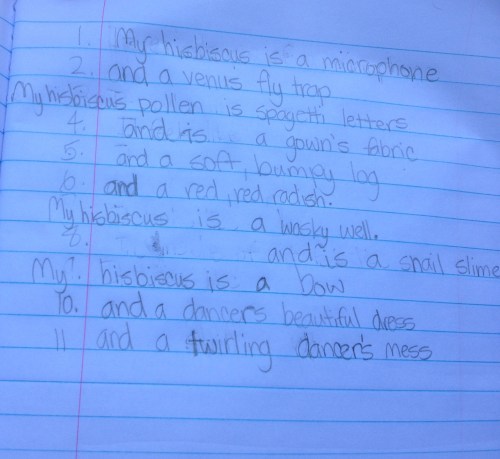 1. My hisbiscus is a microphone
2. and a venus fly trap
My hisbiscus pollen is spagetti letters
4. and is a gown's fabric
5. and a soft, bumpy log
6. and a red, red radish.
My hisbiscus is a wasky well.
8. and is a snail slime
My 9. hisbiscus is a bow
10. and a dancer's beautiful dress
11 and a twirling dancer's mess